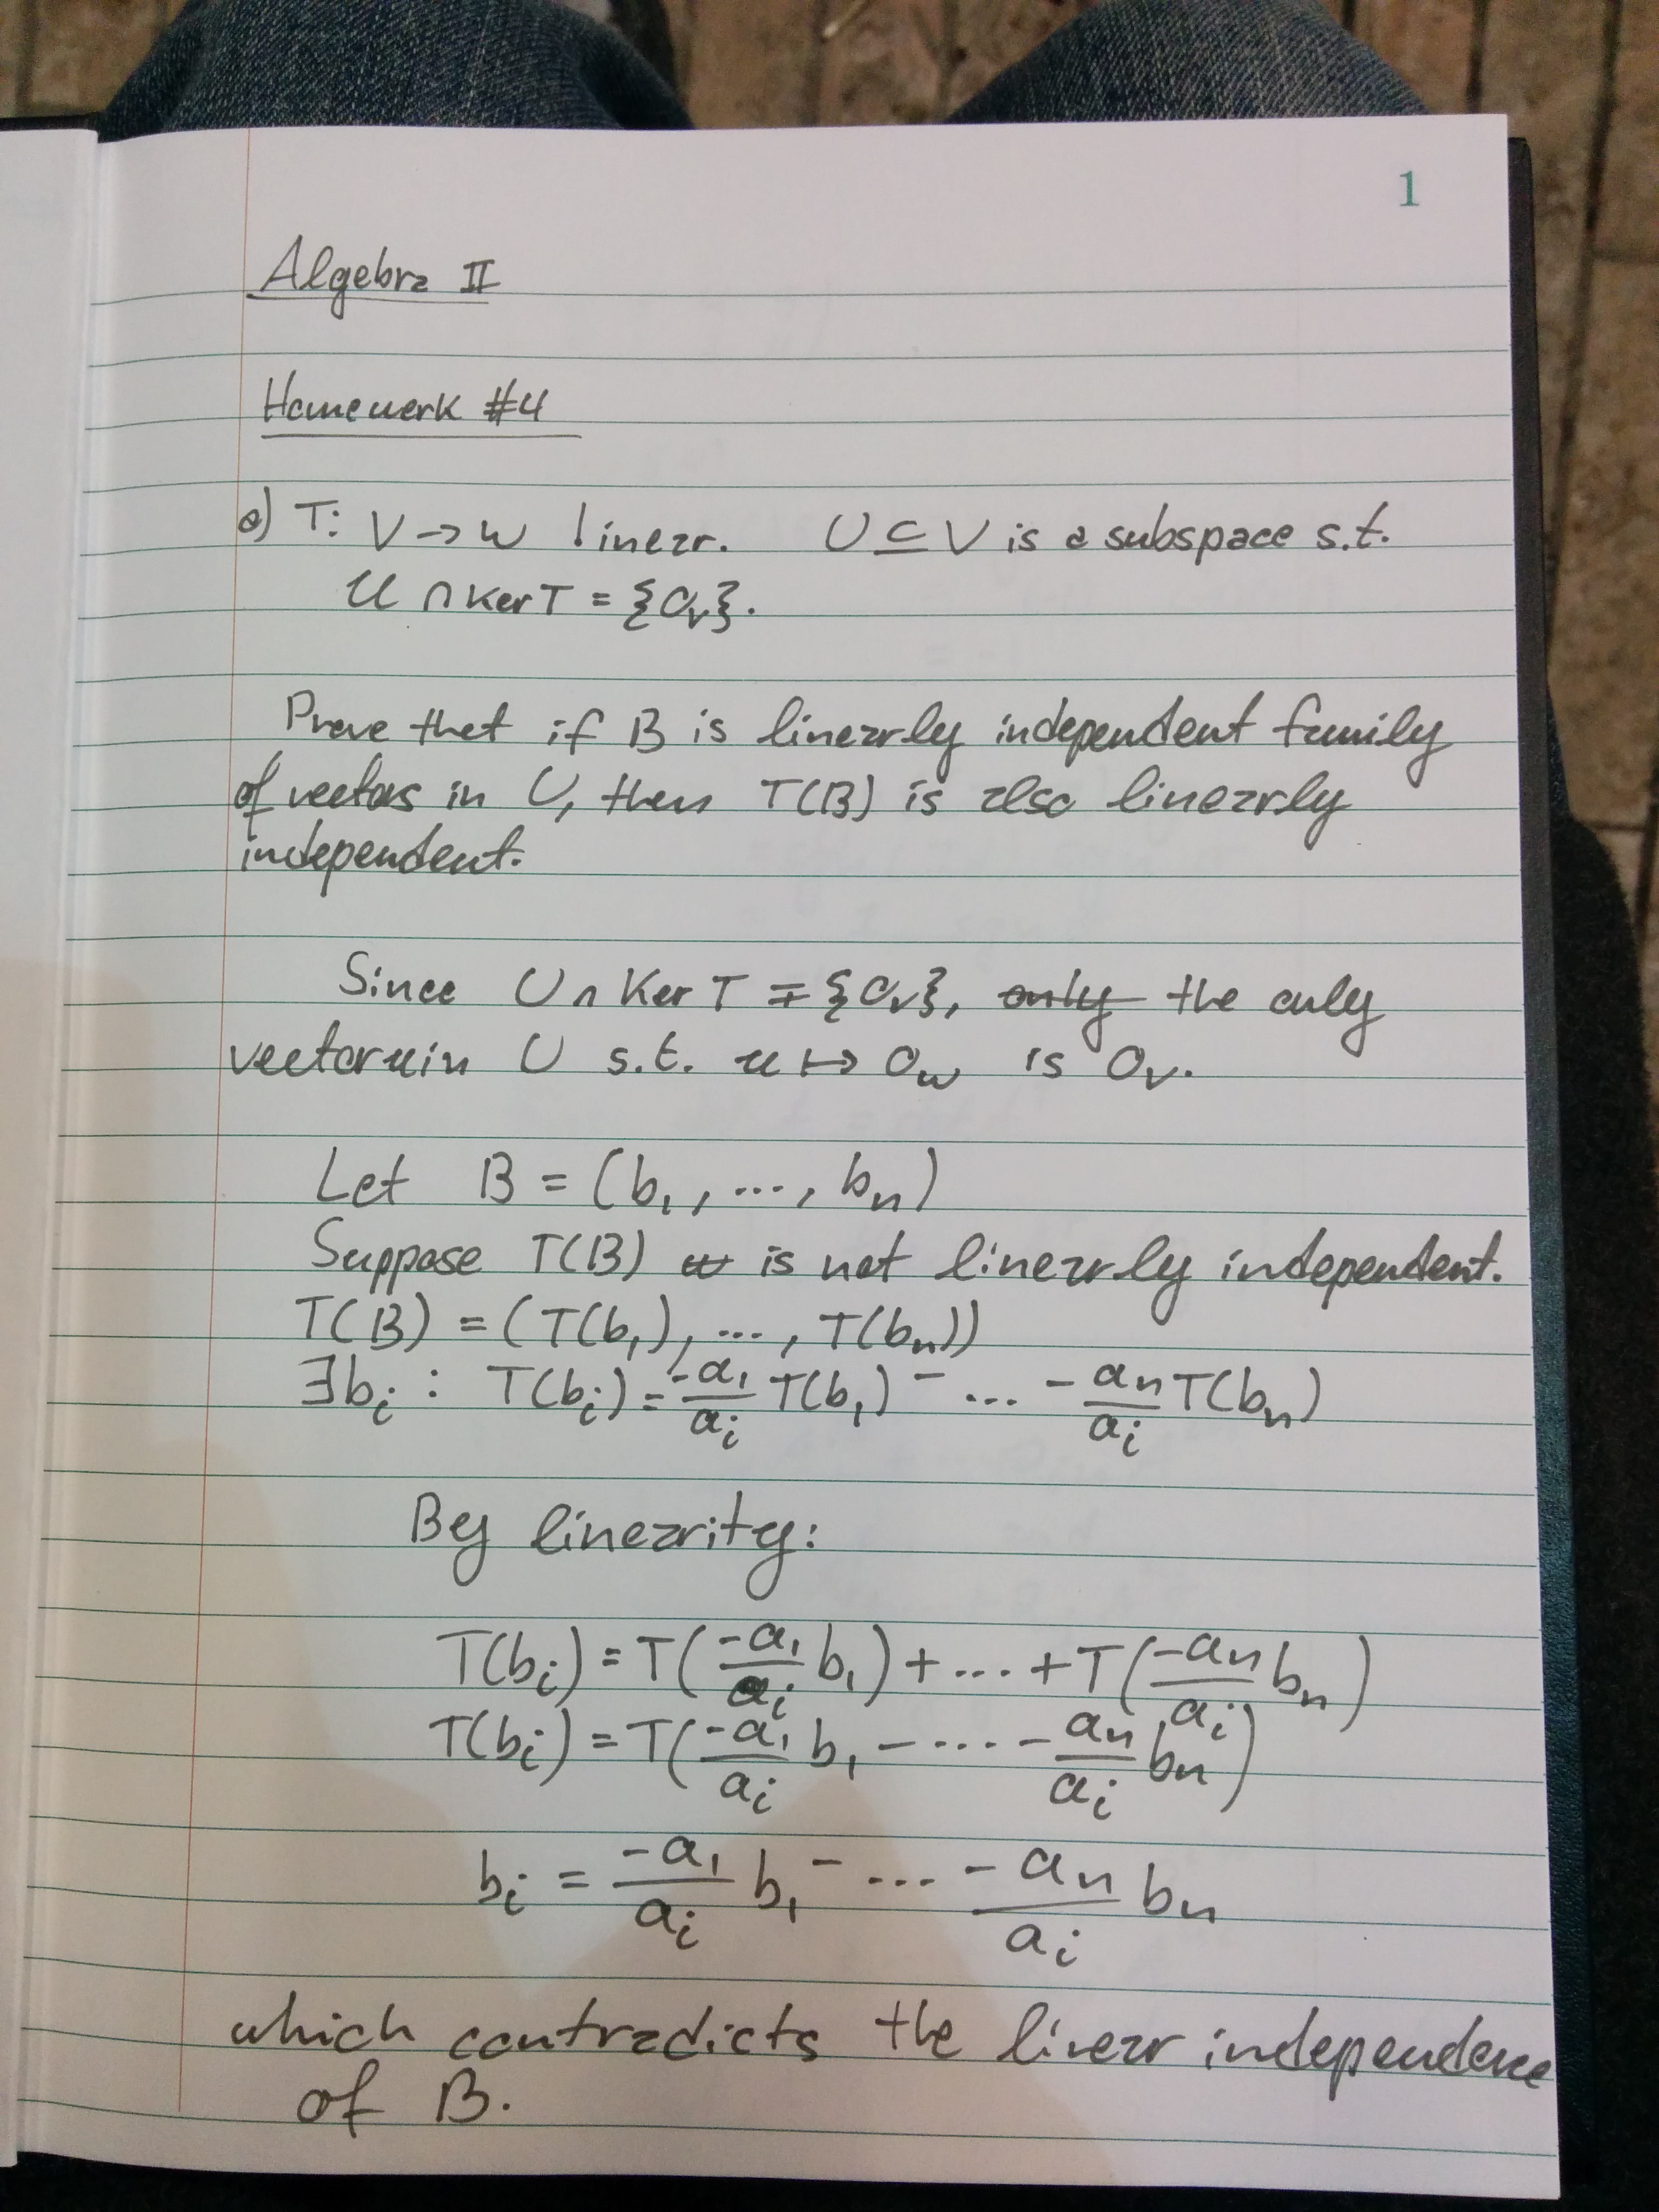 1
Algebra II
Homework #4
a) T: V → W linear. U ⊆ V is a subspace s.t.
U ∩ Ker T = {0ᵥ}.
Prove that if B is linearly independent family
of vectors in U, then T(B) is also linearly
independent.
Since U ∩ Ker T = {0ᵥ}, only the only
vector u in U s.t. u ↦ 0_w is 0ᵥ.
Let B = (b₁, ..., bₙ)
Suppose T(B) is not linearly independent.
T(B) = (T(b₁), ..., T(bₙ))
∃bᵢ : T(bᵢ) = -a₁/aᵢ T(b₁) - ... - aₙ/aᵢ T(bₙ)
By linearity:
T(bᵢ) = T(-a₁/aᵢ b₁) + .... + T(-aₙ/aᵢ bₙ)
T(bᵢ) = T(-a₁/aᵢ b₁ - .... - aₙ/aᵢ bₙ)
bᵢ = -a₁/aᵢ b₁ - ... - aₙ/aᵢ bₙ
which contradicts the linear independence
of B.